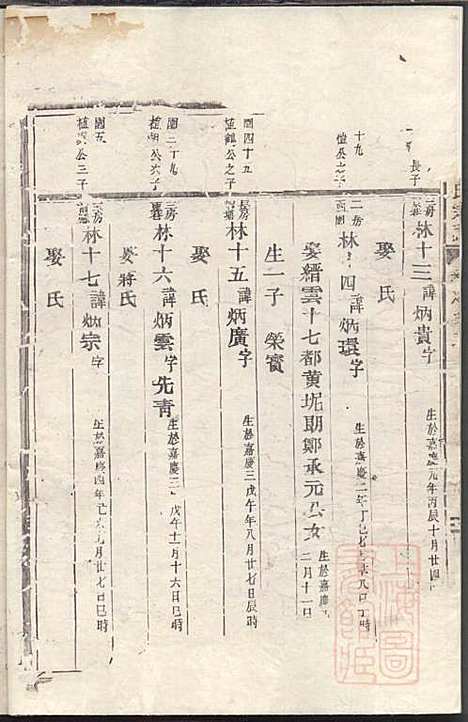 長子
二房 林十三 諱炳貴 字 生於嘉慶元年丙辰十月廿四
娶氏
十九
植 公之子
二房 林十四 諱炳環 字 生於嘉慶二年丁巳 八日丁時
娶縉雲十七都黄坭期鄭承元公女 生於嘉慶 二月十一日
生一子 榮寳
園四十五
植 公之子
長房 林十五 諱炳廣 字 生於嘉慶三戊午年八月廿七日辰時
娶氏
園二十九
植 公次子
二房 林十六 諱炳雲 字 先青 生於嘉慶三 戊午十一月十六日巳時
娶蔣氏
園五
植 公三子
二房 林十七 諱炳宗 字 生於嘉慶四年己未 月廿七日巳時
娶氏
上海圖